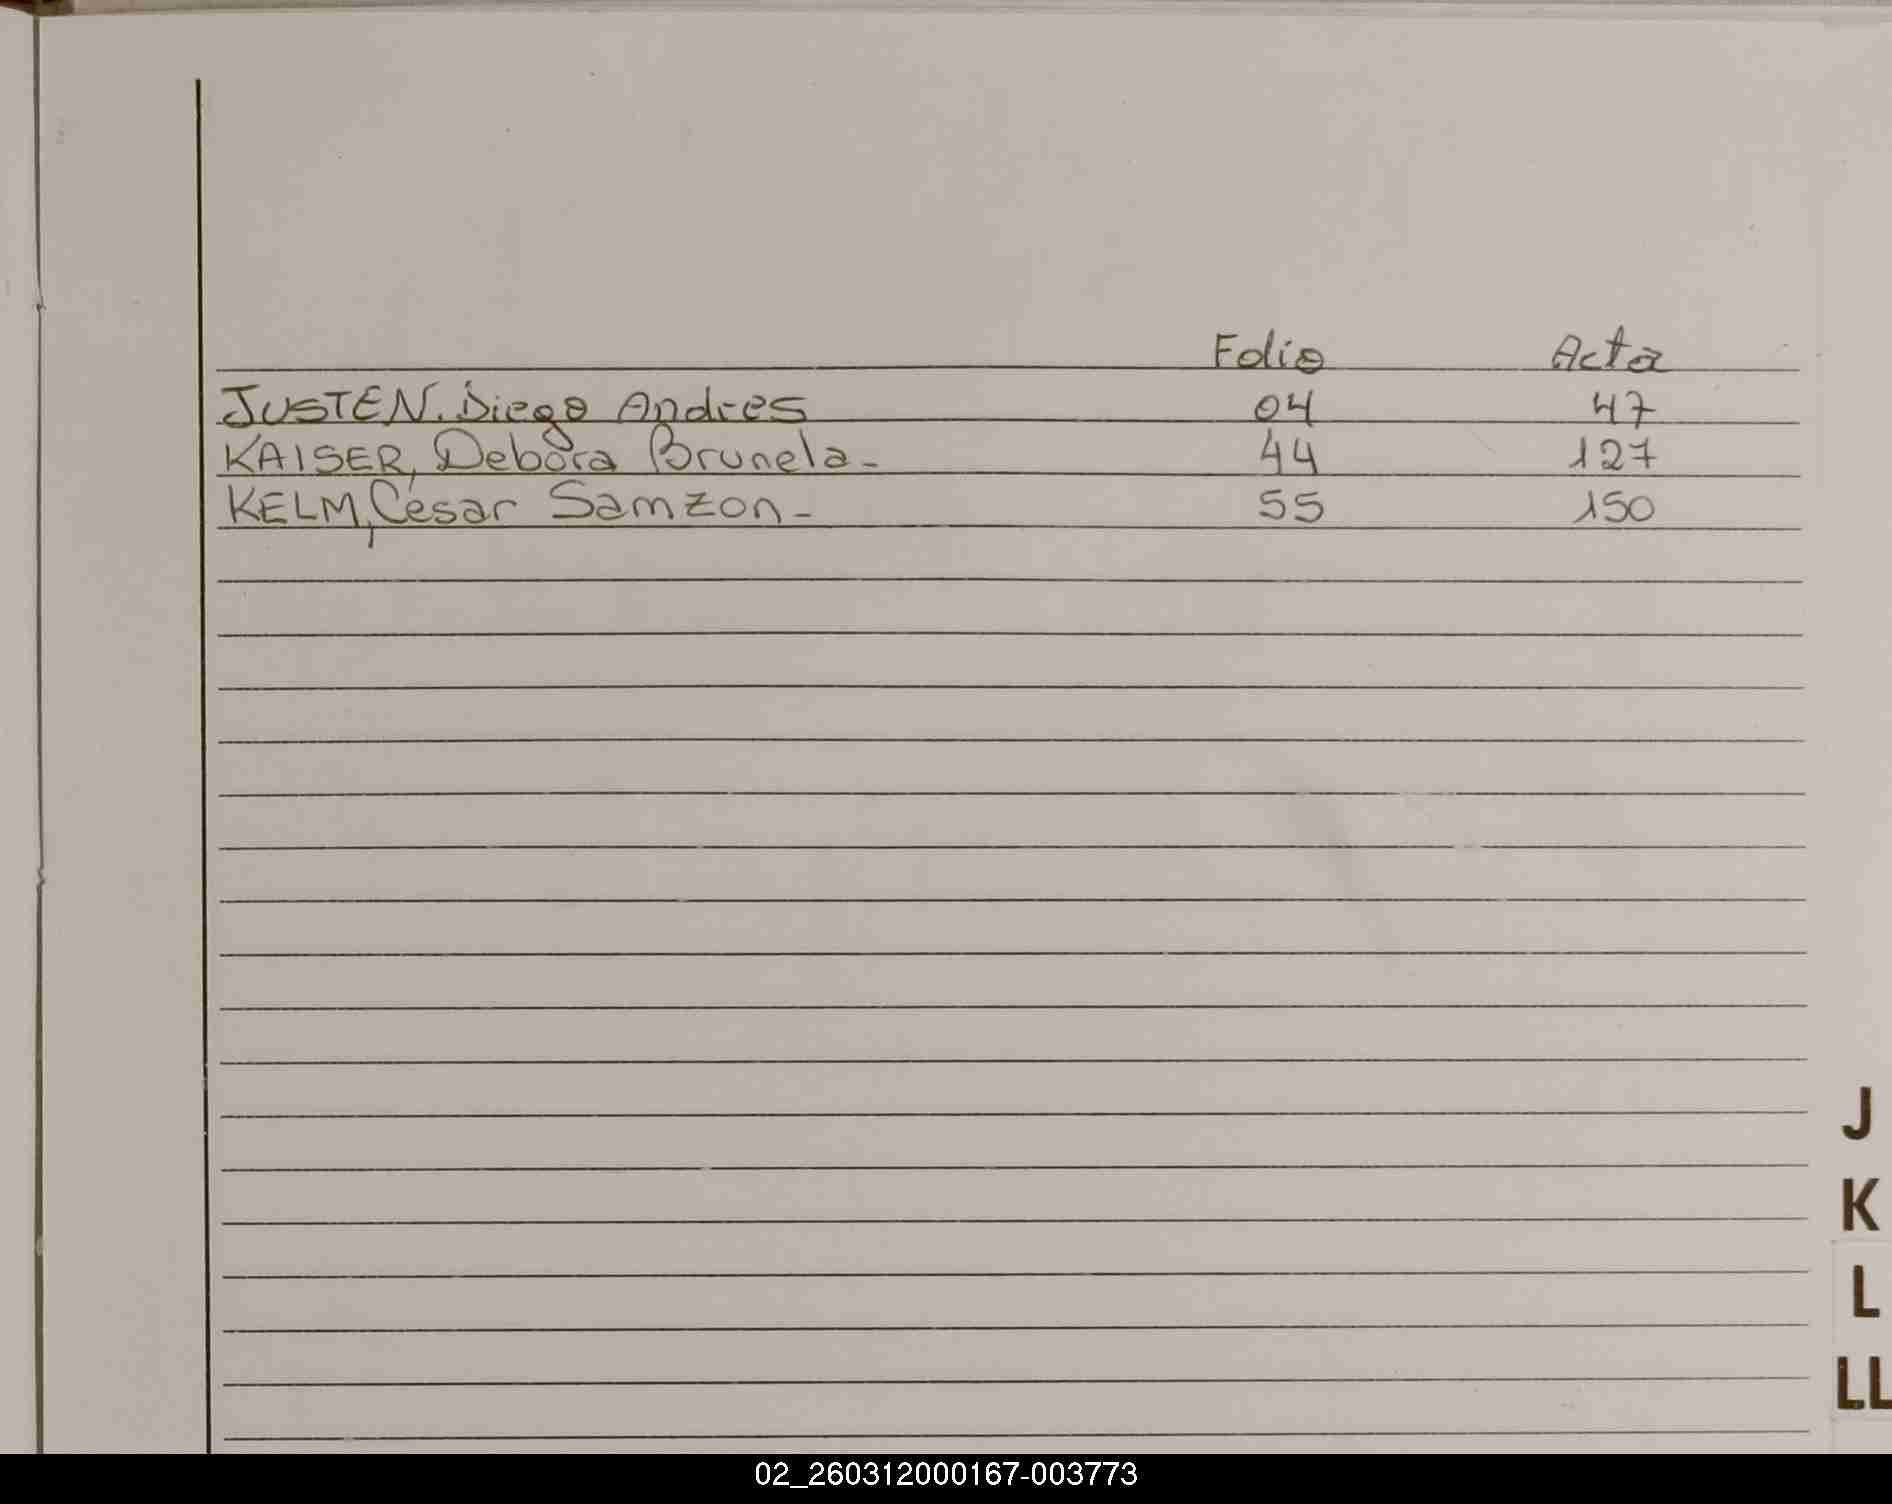 Folio Acta
JUSTEN. Diego Andres 04 47
KAISER, Debora Brunela- 44 127
KELM, César Samzon- 55 150
J
K
L
LL
02_260312000167-003773